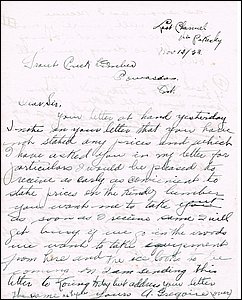 Lost Channel
Nov 12/23
Trout Creek Lumber
Powassan
Ont
Dear Sir.
Your letter at hand yesterday
I note in your letter that you have
not stated any prices and which
I have asked you in my letter for
particulars I would be pleased to
receive as early as convenient to
state prices on the kinds lumber
you want me to take
as soon as I receive same I will
get busy if we go in the woods
we want to take equipments
from here and the ice looks to be
coming in I am sending this
letter to Loring Hby but address your letter
the same Yours A.